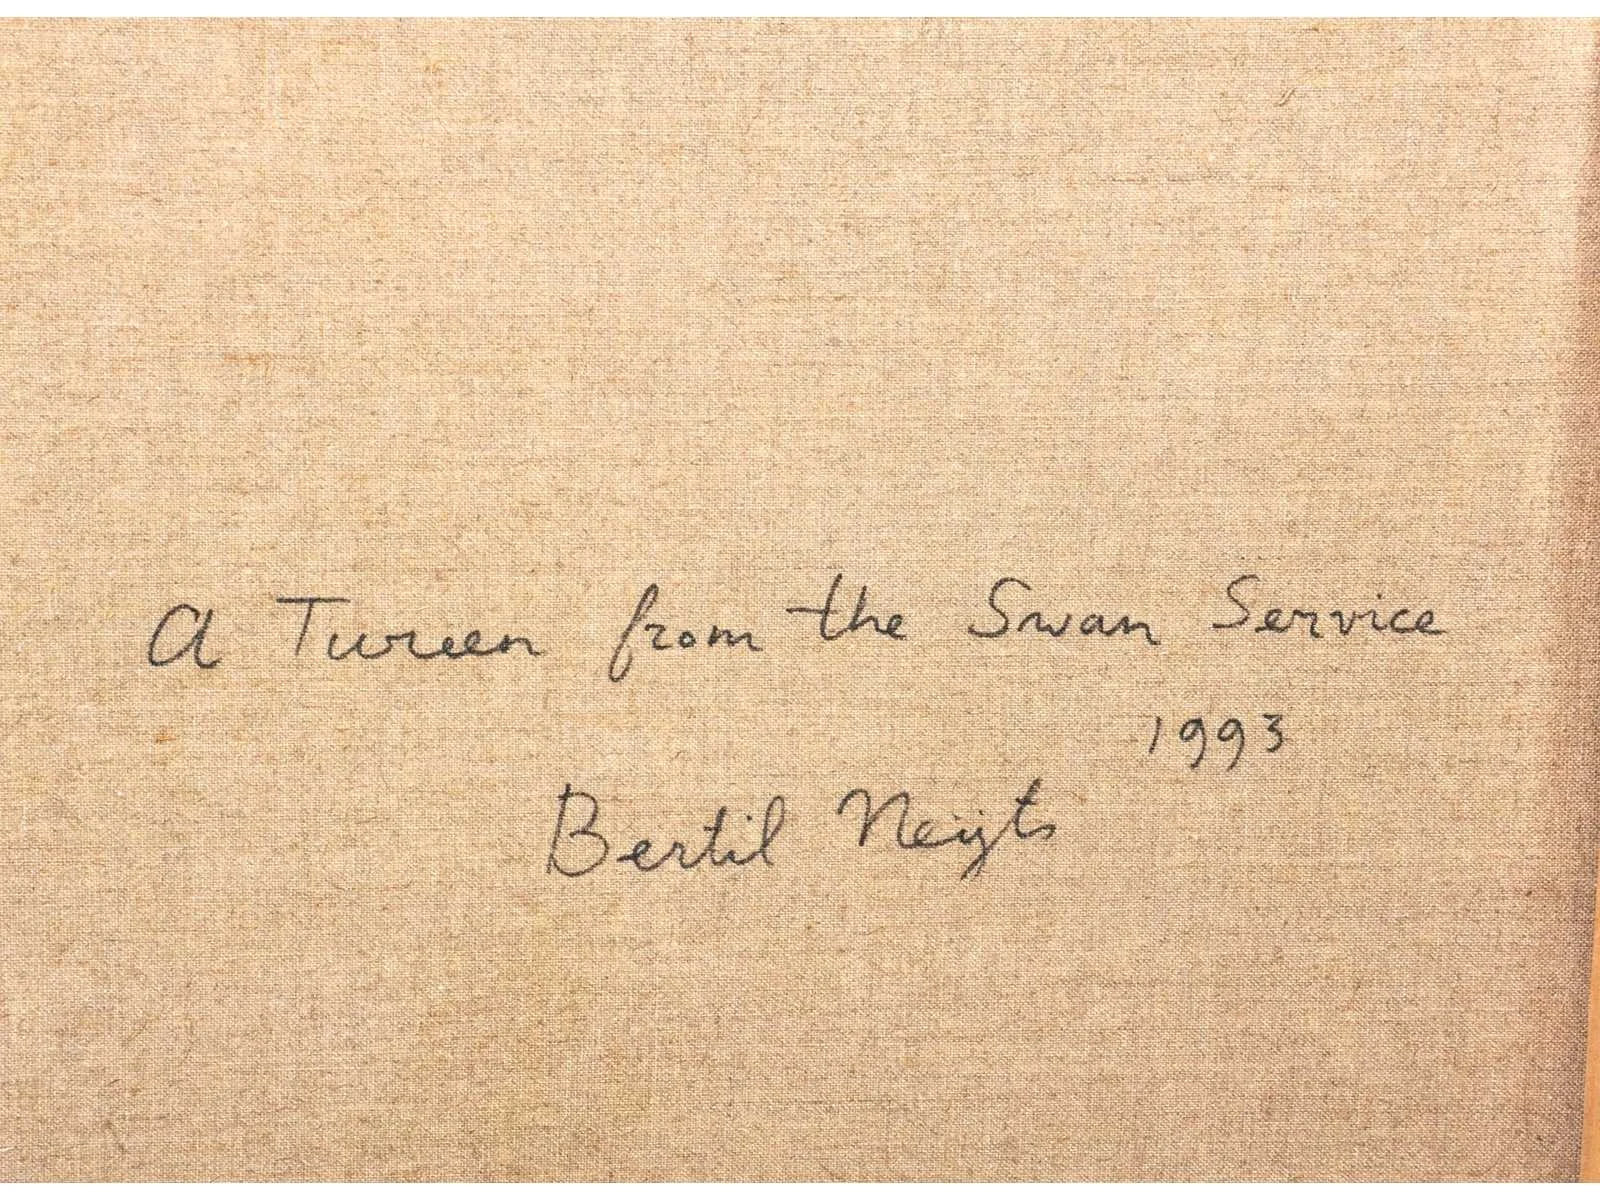 A Tureen from the Swan Service
1993
Bertil Neijts